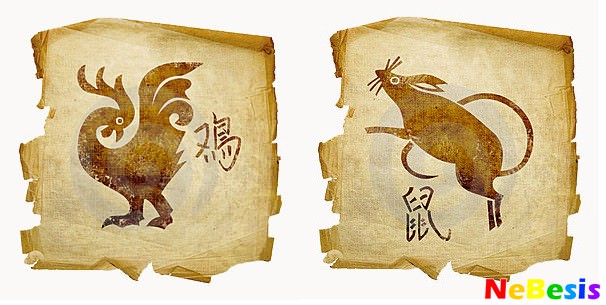 鸡
鼠
NeBesis